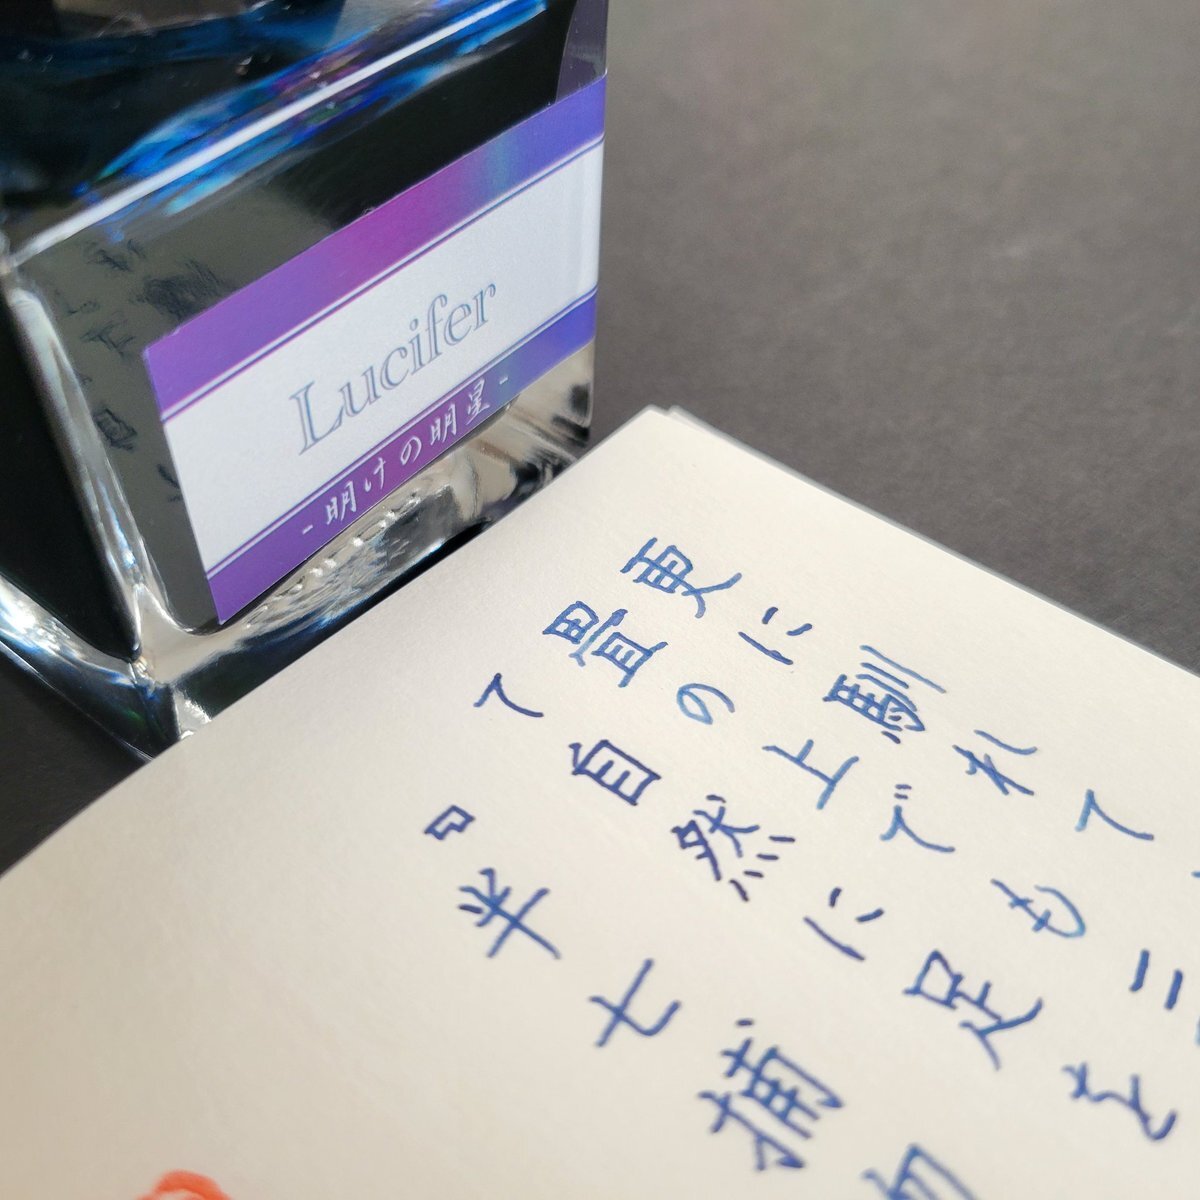 Lucifer
-明けの明星-
更に馴れて
畳の上でも
て自然に足を
』半七捕物